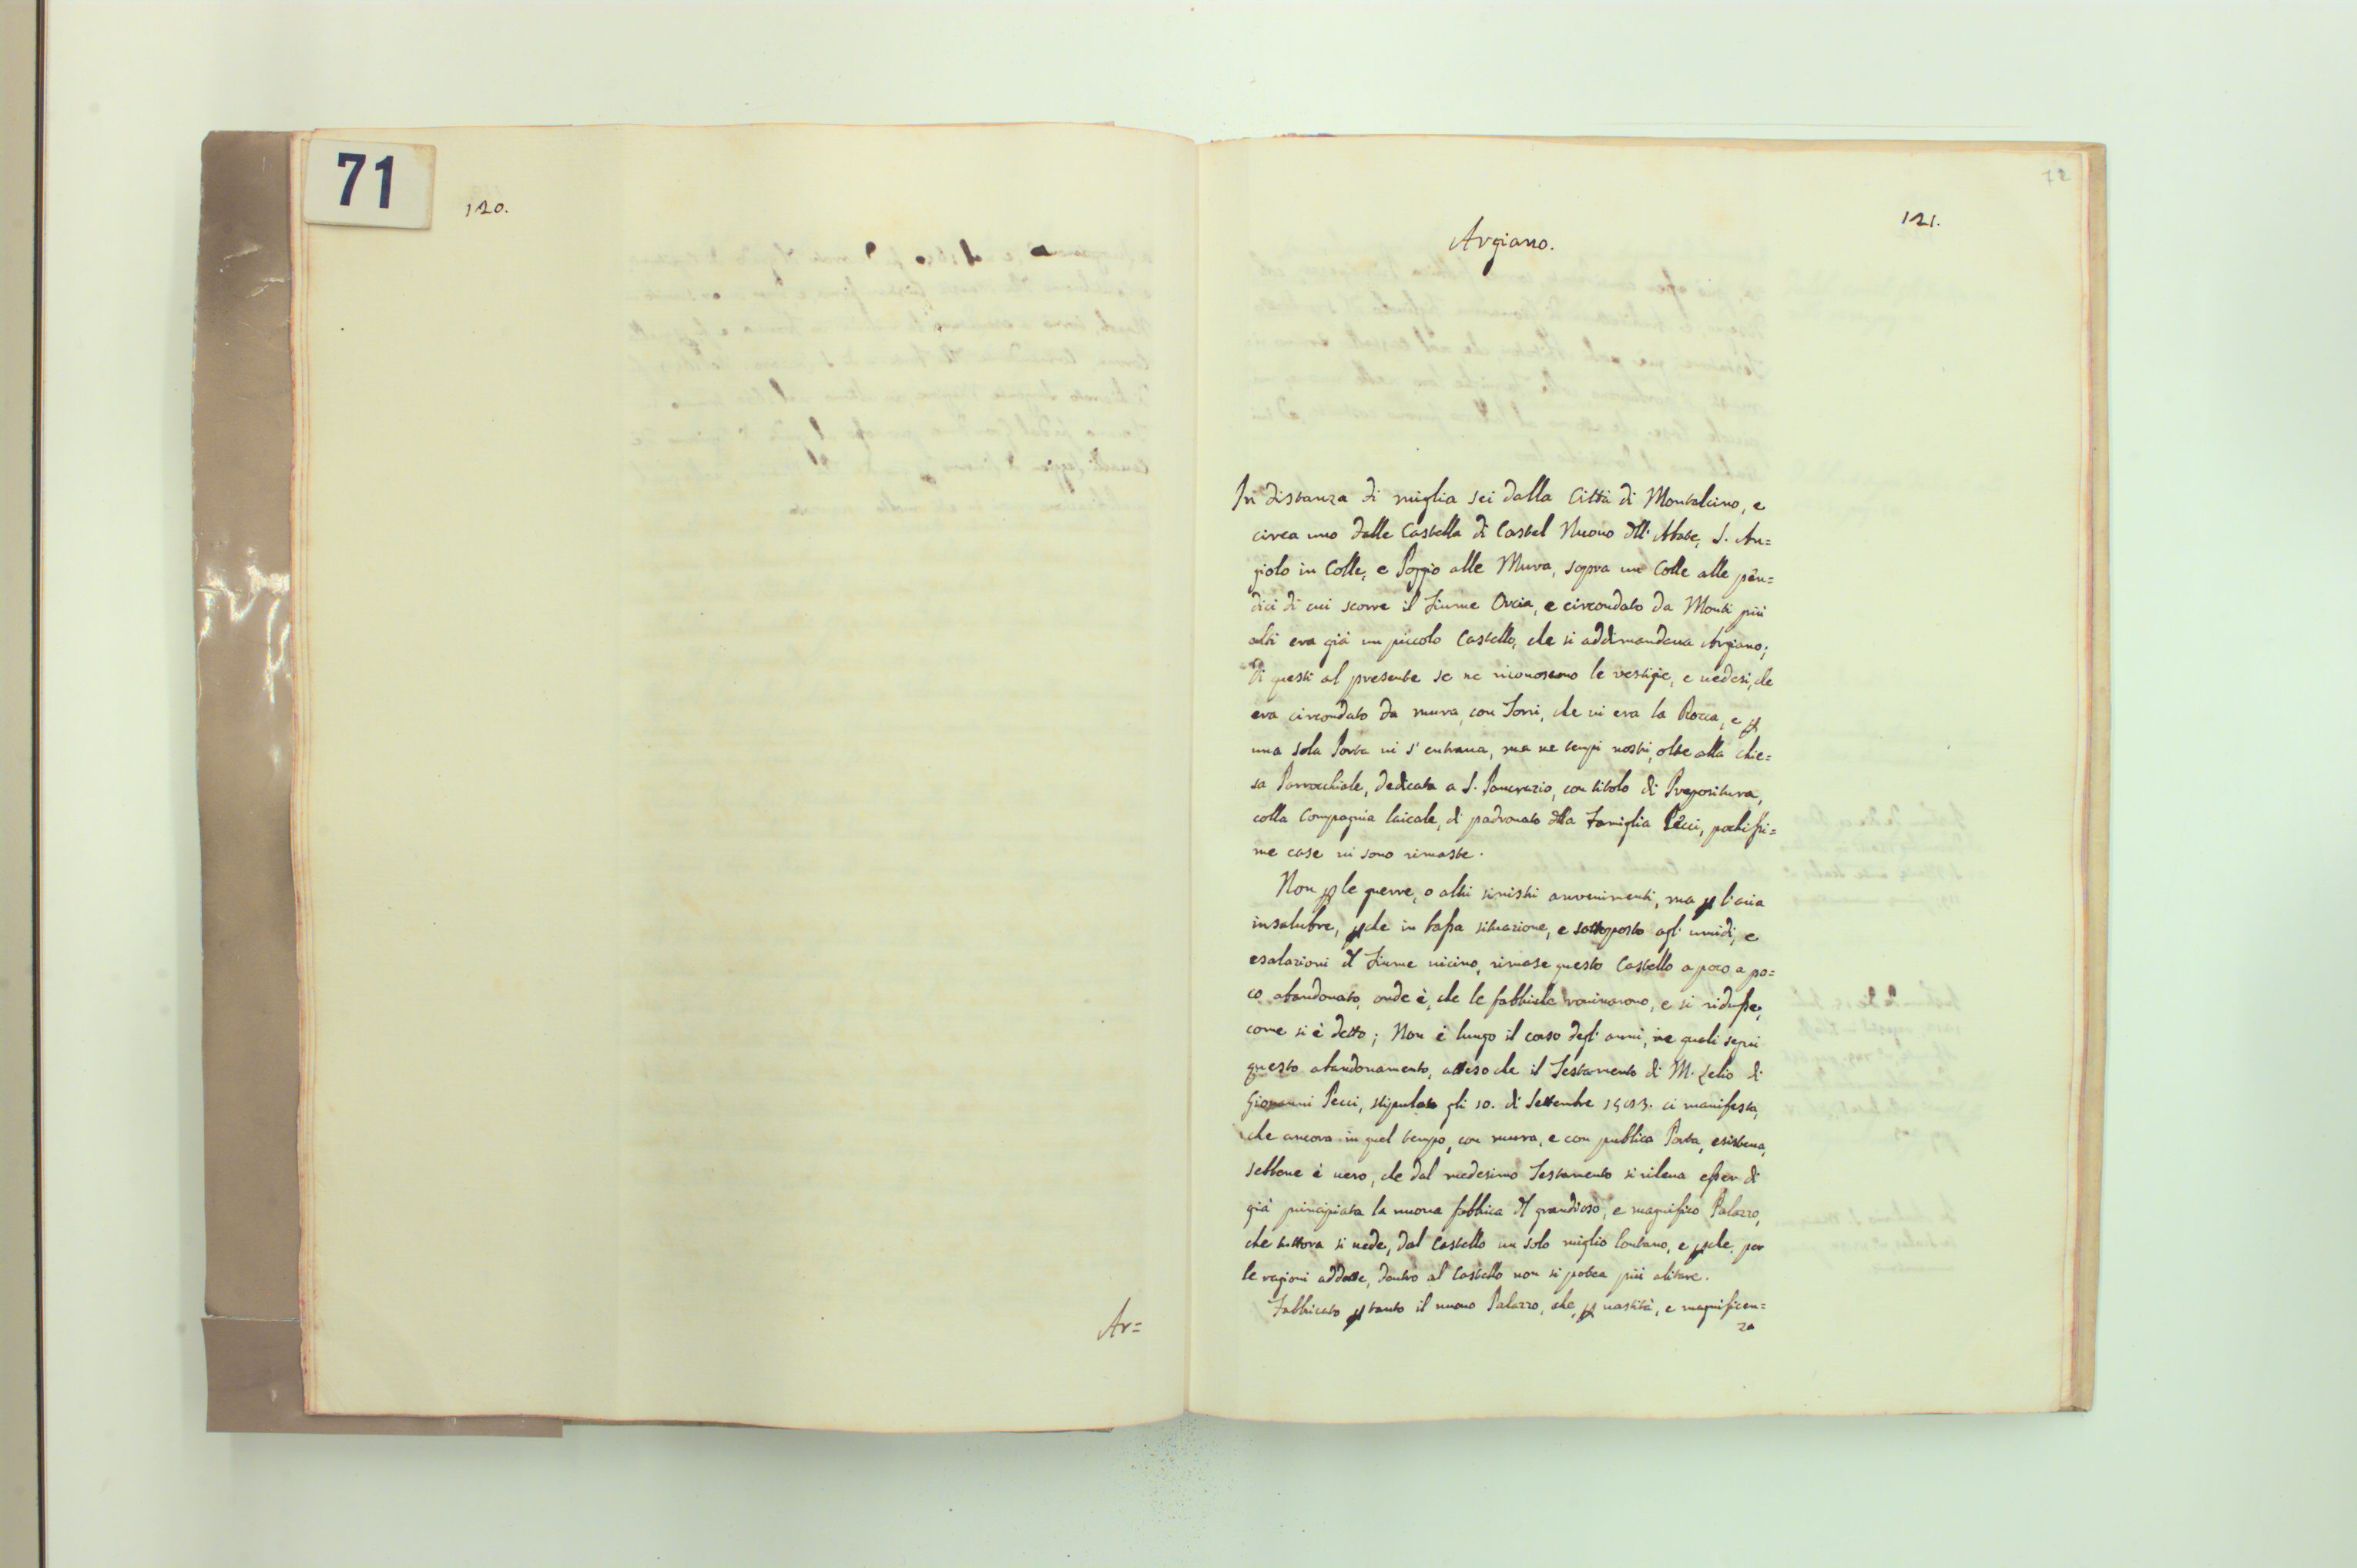 71
120.
Ar=
72
121.
Argiano.
In distanza di miglia sei dalla Città di Montalcino, e
circa uno dalle Castella di Castel Nuovo dll' Abate, S. An=
giolo in Colle, e Poggio alle Mura, sopra un Colle alle pen=
dici di cui scorre il fiume Orcia, e circondato da Monti più
alti era già un piccolo Castello, che si addimandava Argiano;
Di questi al presente se ne riconoscono le vestigie, e vedesi, che
era circondato da mura, con Torri, che vi era la Rocca, e ꝑ
una sola Porta vi s'entrava, ma ne tempi nostri, oltre alla Chie=
sa Parrocchiale, dedicata a S. Pancrazio, con titolo di Prepositura,
colla Compagnia laicale, di padronato dlla Famiglia Pecci, pochissi=
me case vi sono rimaste.
Non ꝑ le guerre, o altri sinistri avvenimenti, ma ꝑ l'aria
insalubre, ꝑche in bassa situazione, e sottoposto agl' umidi, e
esalazioni dl fiume vicino, rimase questo Castello a poco a po=
co abandonato, onde è, che le fabbriche rovinarono, e si ridusse,
come si è detto; Non è lungo il corso degl' anni, ne quali seguì
questo abandonamento, atteso che il Testamento di M. Lelio di
Giovanni Pecci, stipulato gli 10. di Settembre ci manifesta,
che ancora in quel tempo, con mura, e con publica Porta, esisteva,
sebbene è vero, che dal medesimo Testamento si rileva esser di
già principiata la nuova fabbrica dl grandioso, e magnifico Palazzo,
che tuttora si vede, dal Castello un solo miglio lontano, e ꝑche per
le ragioni addotte, dentro al Castello non si potea più abitare.
Fabbricato ꝑtanto il nuovo Palazzo, che, ꝑ vastità, e magnificen=
za